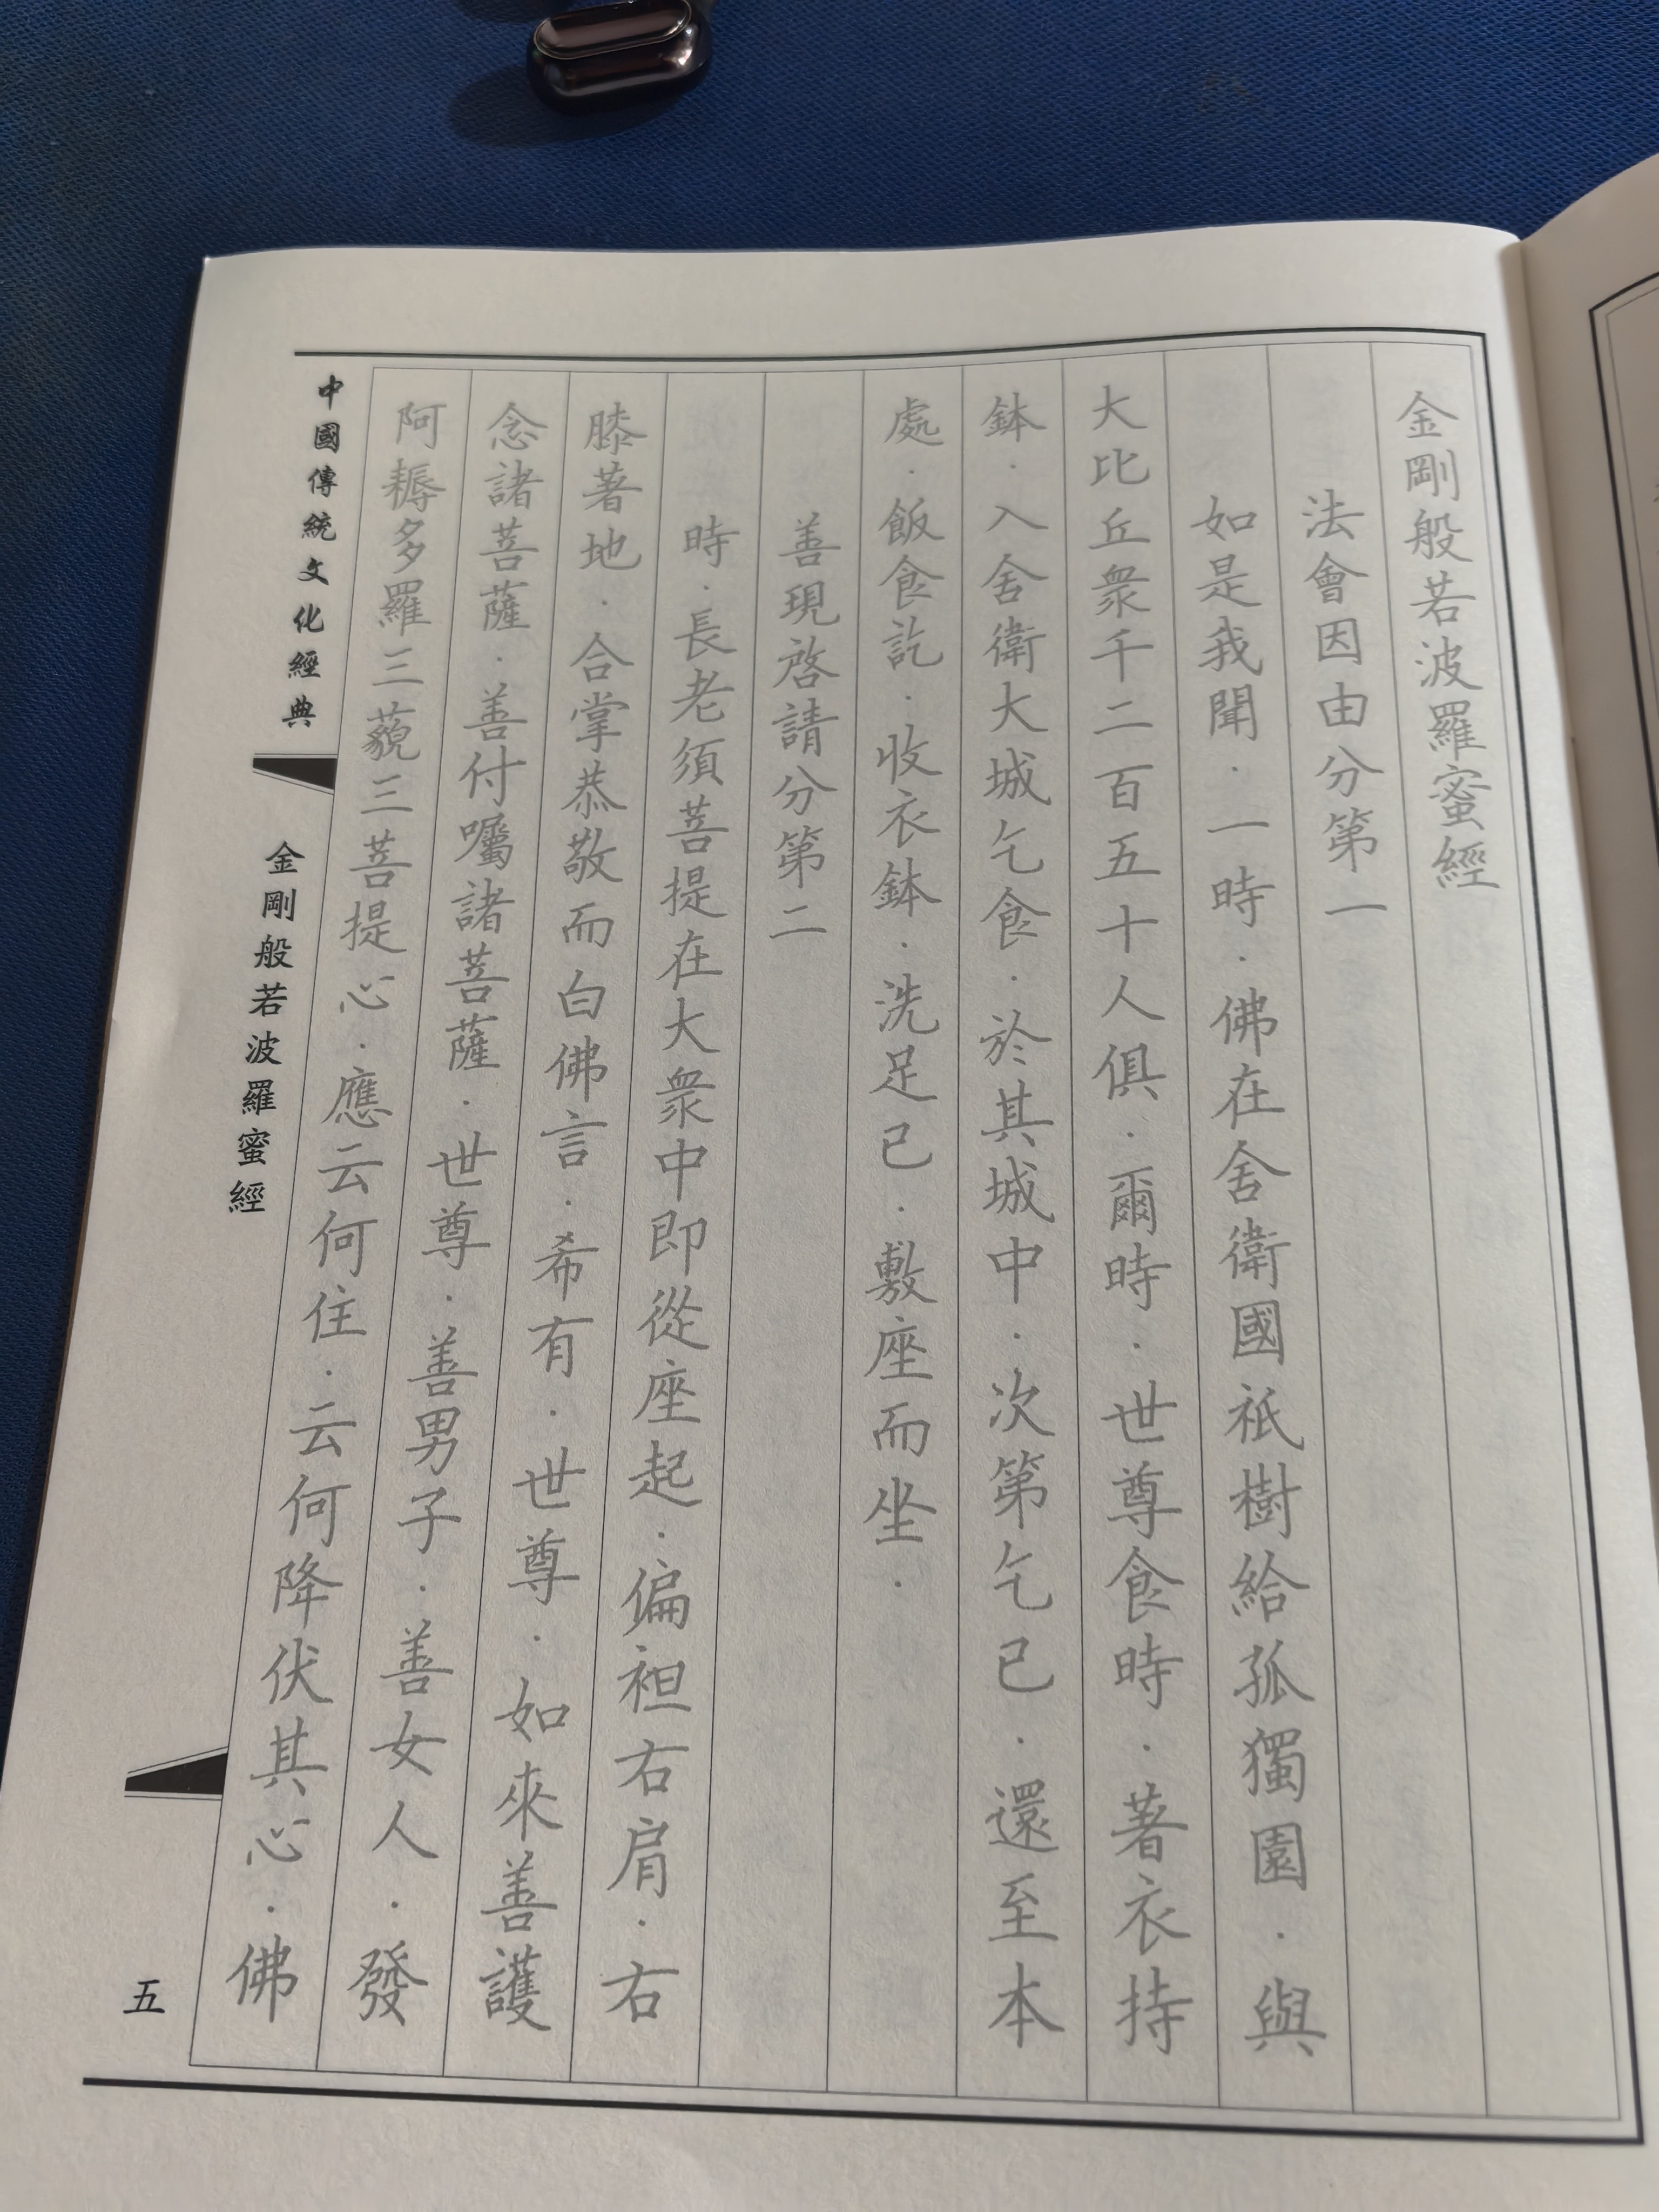 金剛般若波羅蜜經
法會因由分第一
如是我聞．一時．佛在舍衛國祇樹給孤獨園．與
大比丘衆千二百五十人俱．爾時．世尊食時．著衣持
鉢．入舍衛大城乞食．於其城中．次第乞已．還至本
處．飯食訖．收衣鉢．洗足已．敷座而坐．
善現啓請分第二
時．長老須菩提在大衆中即從座起．偏袒右肩．右
膝著地．合掌恭敬而白佛言．希有．世尊．如來善護
念諸菩薩．善付囑諸菩薩．世尊．善男子．善女人．發
阿耨多羅三藐三菩提心．應云何住．云何降伏其心．佛
中國傳統文化經典
金剛般若波羅蜜經
五